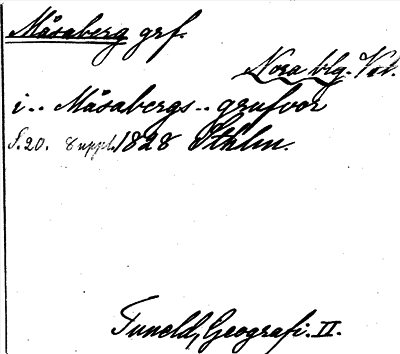 Måsaberg grf.
Nora blg. Vstm.
i.. Måsabergs.. grufvor
S. 20. 8 uppl. 1828 Sthlm.
Tuneld, Geografi. II.